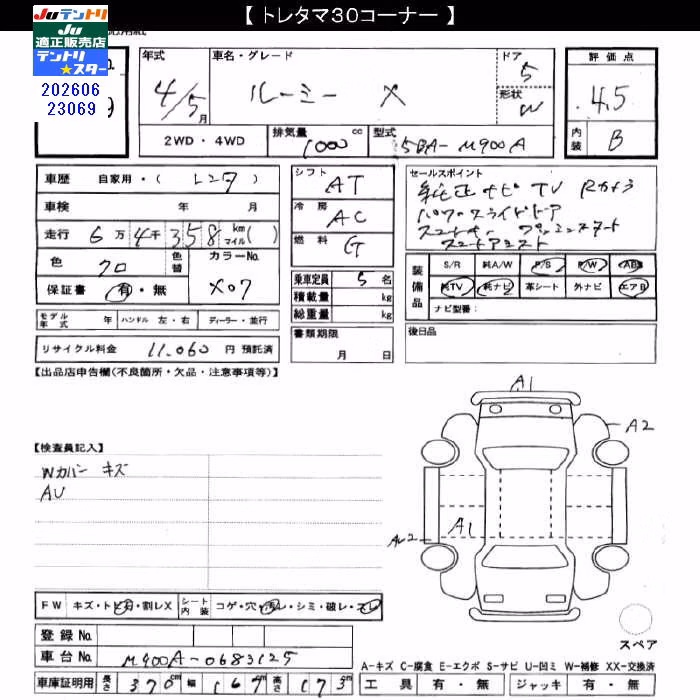 【 トレタマ30コーナー 】
Juテントリ
Ju
適正販売店
テントリ
★スター
202606
23069
年式
4/5月
車名・グレード
ルーミー X
ドア
5
形状
W
評価点
4.5
内装
B
2WD・4WD
排気量
1000 cc
型式
5BA-M900A
車歴 自家用・( レンタ )
車検 年 月
走行 6万4千358 km マイル( )
色 クロ
色替
カラーNo.
X07
保証書 有・無
モデル年式 年
ハンドル 左・右
ディーラー・並行
リサイクル料金 11.060 円預託済
シフト AT
冷房 AC
燃料 G
乗車定員 5 名
積載量 kg
総重量 kg
書類期限
月 日
セールスポイント
純正ナビ TV Rカメラ
パワースライドドア
スマートキー プッシュスタート
スマートアシスト
装備品
S/R 純A/W P/S P/W ABS
純TV 純ナビ 革シート 外ナビ エアB
ナビ型番:
後日品
【出品店申告欄(不良箇所・欠品・注意事項等)】
【検査員記入】
Wカバー キズ
AU
A1
A2
A1
AU2
スペア
FW キズ・トビ石・割レX
シート内装 コゲ・穴・汚レ・シミ・破レ・スレ
登録No.
車台No. M900A-0683125
車庫証明用 長さ 370cm 幅 167 高さ 173
A-キズ C-腐食 E-エクボ S-サビ U-凹ミ W-補修 XX-交換済
工具 有・無
ジャッキ 有・無